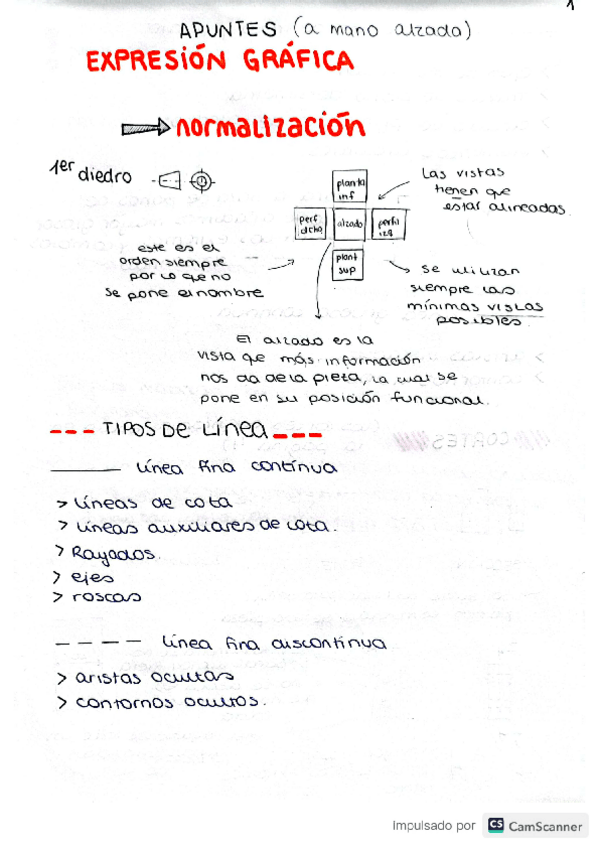 1
APUNTES (a mano alzada)
EXPRESIÓN GRÁFICA
normalización
1er diedro
planta
inf
perf
dcho
alzado
perfil
izq
plant
sup
Las vistas
tienen que
estar alineadas.
este es el
orden siempre
por lo que no
se pone el nombre
se utilizan
siempre las
mínimas vistas
posibles.
El alzado es la
vista que más información
nos da de la pieza, la cual se
pone en su posición funcional.
--- TIPOS DE LÍNEA ---
línea fina contínua
> líneas de cota
> líneas auxiliares de cota.
> Rayados.
> ejes
> roscas
línea fina discontínua
> aristas ocultas
> contornos ocultos.
Impulsado por CS CamScanner